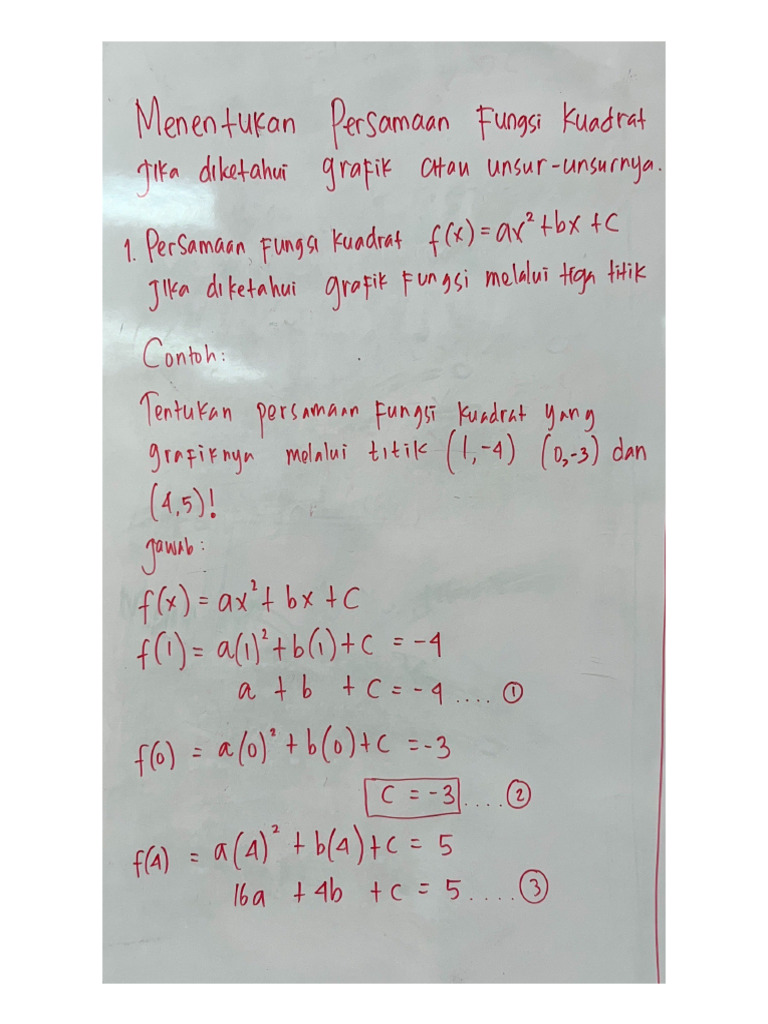 Menentukan Persamaan Fungsi Kuadrat
Jika diketahui grafik atau unsur-unsurnya.
1. Persamaan Fungsi Kuadrat f(x) = ax² + bx + c
Jika diketahui grafik Fungsi melalui tiga titik
Contoh:
Tentukan persamaan Fungsi kuadrat yang
grafiknya melalui titik (1,-4) (0,-3) dan
(4,5)!
Jawab:
f(x) = ax² + bx + c
f(1) = a(1)² + b(1) + c = -4
a + b + c = -4 .... ①
f(0) = a(0)² + b(0) + c = -3
c = -3 .... ②
f(4) = a(4)² + b(4) + c = 5
16a + 4b + c = 5 .... ③